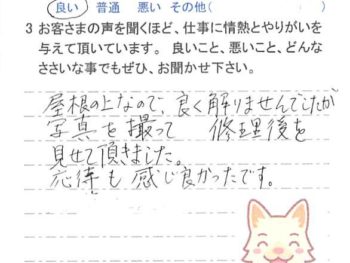 良い 普通 悪い その他( )
3 お客さまの声を聞くほど、仕事に情熱とやりがいを
与えて頂いています。 良いこと、悪いこと、どんな
ささいな事でもぜひ、お聞かせ下さい。
屋根の上なので、良く解りませんでしたが
写真を撮って 修理後を
見せて頂きました。
応待も感じ良かったです。